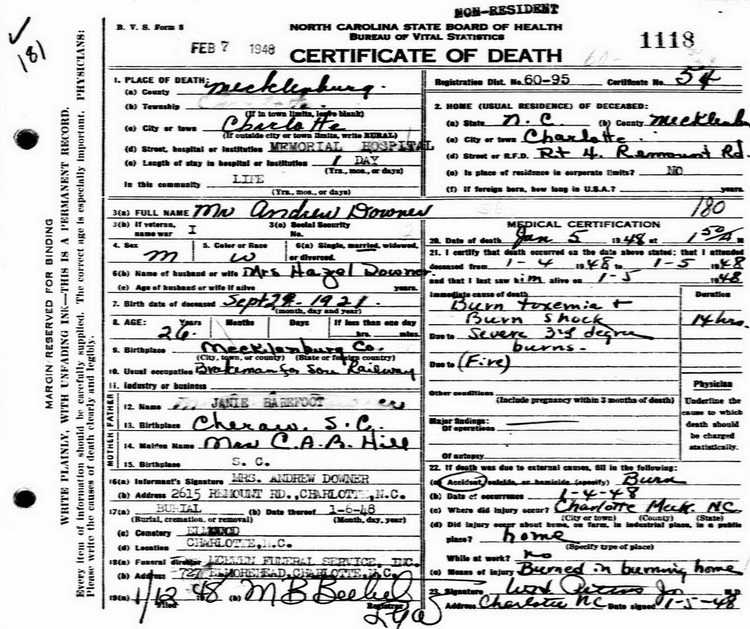 NON-RESIDENT
B. V. S. Form 8
NORTH CAROLINA STATE BOARD OF HEALTH
BUREAU OF VITAL STATISTICS
FEB 7 1948
CERTIFICATE OF DEATH
1118
181
MARGIN RESERVED FOR BINDING
WRITE PLAINLY, WITH UNFADING INK—THIS IS A PERMANENT RECORD.
Every item of information should be carefully supplied. The correct age is especially important. PHYSICIANS:
Please write the causes of death clearly and legibly.
Registration Dist. No. 60-95 Certificate No. 54
1. PLACE OF DEATH:
(a) County Mecklenburg
(b) Township
(If in town limits, leave blank)
(c) City or town Charlotte
(If outside city or town limits, write RURAL)
(d) Street, hospital or institution MEMORIAL HOSPITAL
(e) Length of stay in hospital or institution 1 DAY
(Yrs., mos., or days)
In this community LIFE
(Yrs., mos., or days)
2. HOME (USUAL RESIDENCE) OF DECEASED:
(a) State N.C. (b) County
(c) City or town Charlotte
(d) Street or R.F.D. Rt 4. Remount Rd.
(e) Is place of residence in corporate limits? NO
(f) If foreign born, how long in U.S.A.? years
3(a) FULL NAME Mr Andrew Downer
180
3(b) If veteran, name war I
3(c) Social Security No.
4. Sex M
5. Color or Race W
6(a) Single, married, widowed, or divorced.
6(b) Name of husband or wife Mrs Hazel Downer
6(c) Age of husband or wife if alive years
7. Birth date of deceased Sept 1921
(month, day and year)
8. AGE: Years Months Days If less than one day
26 hrs. min.
9. Birthplace Mecklenburg Co.
(City, town, or county) (State or foreign country)
10. Usual occupation Brakeman for Sou Railway
11. Industry or business
FATHER
12. Name JAMIE BAREFOOT
13. Birthplace Cheraw, S.C.
MOTHER
14. Maiden Name Mrs C.A.B. Hill
15. Birthplace S. C.
16(a) Informant's Signature MRS. ANDREW DOWNER
(b) Address 2615 REMOUNT RD., CHARLOTTE, N.C.
17(a) BURIAL (b) Date thereof 1-6-48
(Burial, cremation, or removal) (Month, day, year)
(c) Cemetery ELMWOOD
(d) Location CHARLOTTE, N.C.
18(a) Funeral director FUNERAL SERVICE, INC.
(b) Address 727 E. MOREHEAD, CHARLOTTE, N.C.
19(a) 1/12 48 (b) M B
Filed Registrar
MEDICAL CERTIFICATION
20. Date of death Jan 5 1948 at 1:50 A M
21. I certify that death occurred on the above date stated; that I attended
deceased from 1-4 1948 to 1-5 1948
and that I last saw him alive on 1-5 1948
Immediate cause of death Duration
Burn toxemia +
Burn Shock 14 hrs.
Due to Severe 3rd degree
burns.
Due to (Fire)
Other conditions
(Include pregnancy within 3 months of death)
Major findings:
Of operations
Of autopsy
Physician
Underline the cause to which death should be charged statistically.
22. If death was due to external causes, fill in the following:
(a) Accident, suicide, or homicide (specify) Burn
(b) Date of occurrence 1-4-48
(c) Where did injury occur? Charlotte Meck. NC
(City or town) (County) (State)
(d) Did injury occur about home, on farm, in industrial place, in a public
place? home
(Specify type of place)
While at work? no
(e) Means of injury Burned in burning home
23. Signature M.D.
Address Charlotte NC Date signed 1-5-48